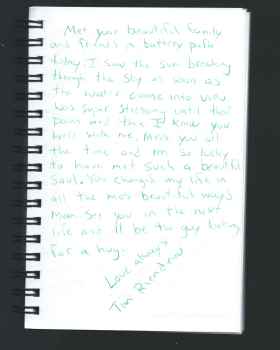 Met your beautiful family
and friends a battery park
today. I saw the sun breaking
though the sky as soon as
the water came into view
was super stressing until that
point and then I knew you
were with me. Miss you all
the time and I'm so lucky
to have met such a beautiful
soul. You changed my life in
all the most beautiful ways
Man. See you in the next
life and I'll be the guy
for a hug.
Love always
Tim